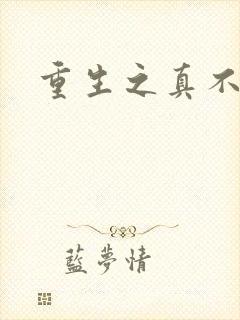 重生之真不
藍夢情